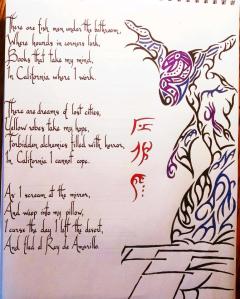 There are fish men under the bathroom,
Where hounds in corners lurk,
Books that take my mind,
In California where I work.
There are dreams of lost cities,
Yellow robes take my hope,
Forbidden alchemies filled with horror,
In California I cannot cope.
As I scream at the mirror,
And weep into my pillow,
I curse the day I left the desert,
And fled el Rey de Amarillo.